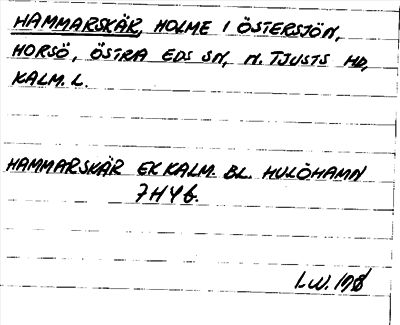 HAMMARSKÄR, HOLME I ÖSTERSJÖN,
HORSÖ, ÖSTRA EDS SN, N. TJUSTS HD,
KALM. L.
HAMMARSKÄR EK KALM. BL. HULÖHAMN
7H4b.
I.W.